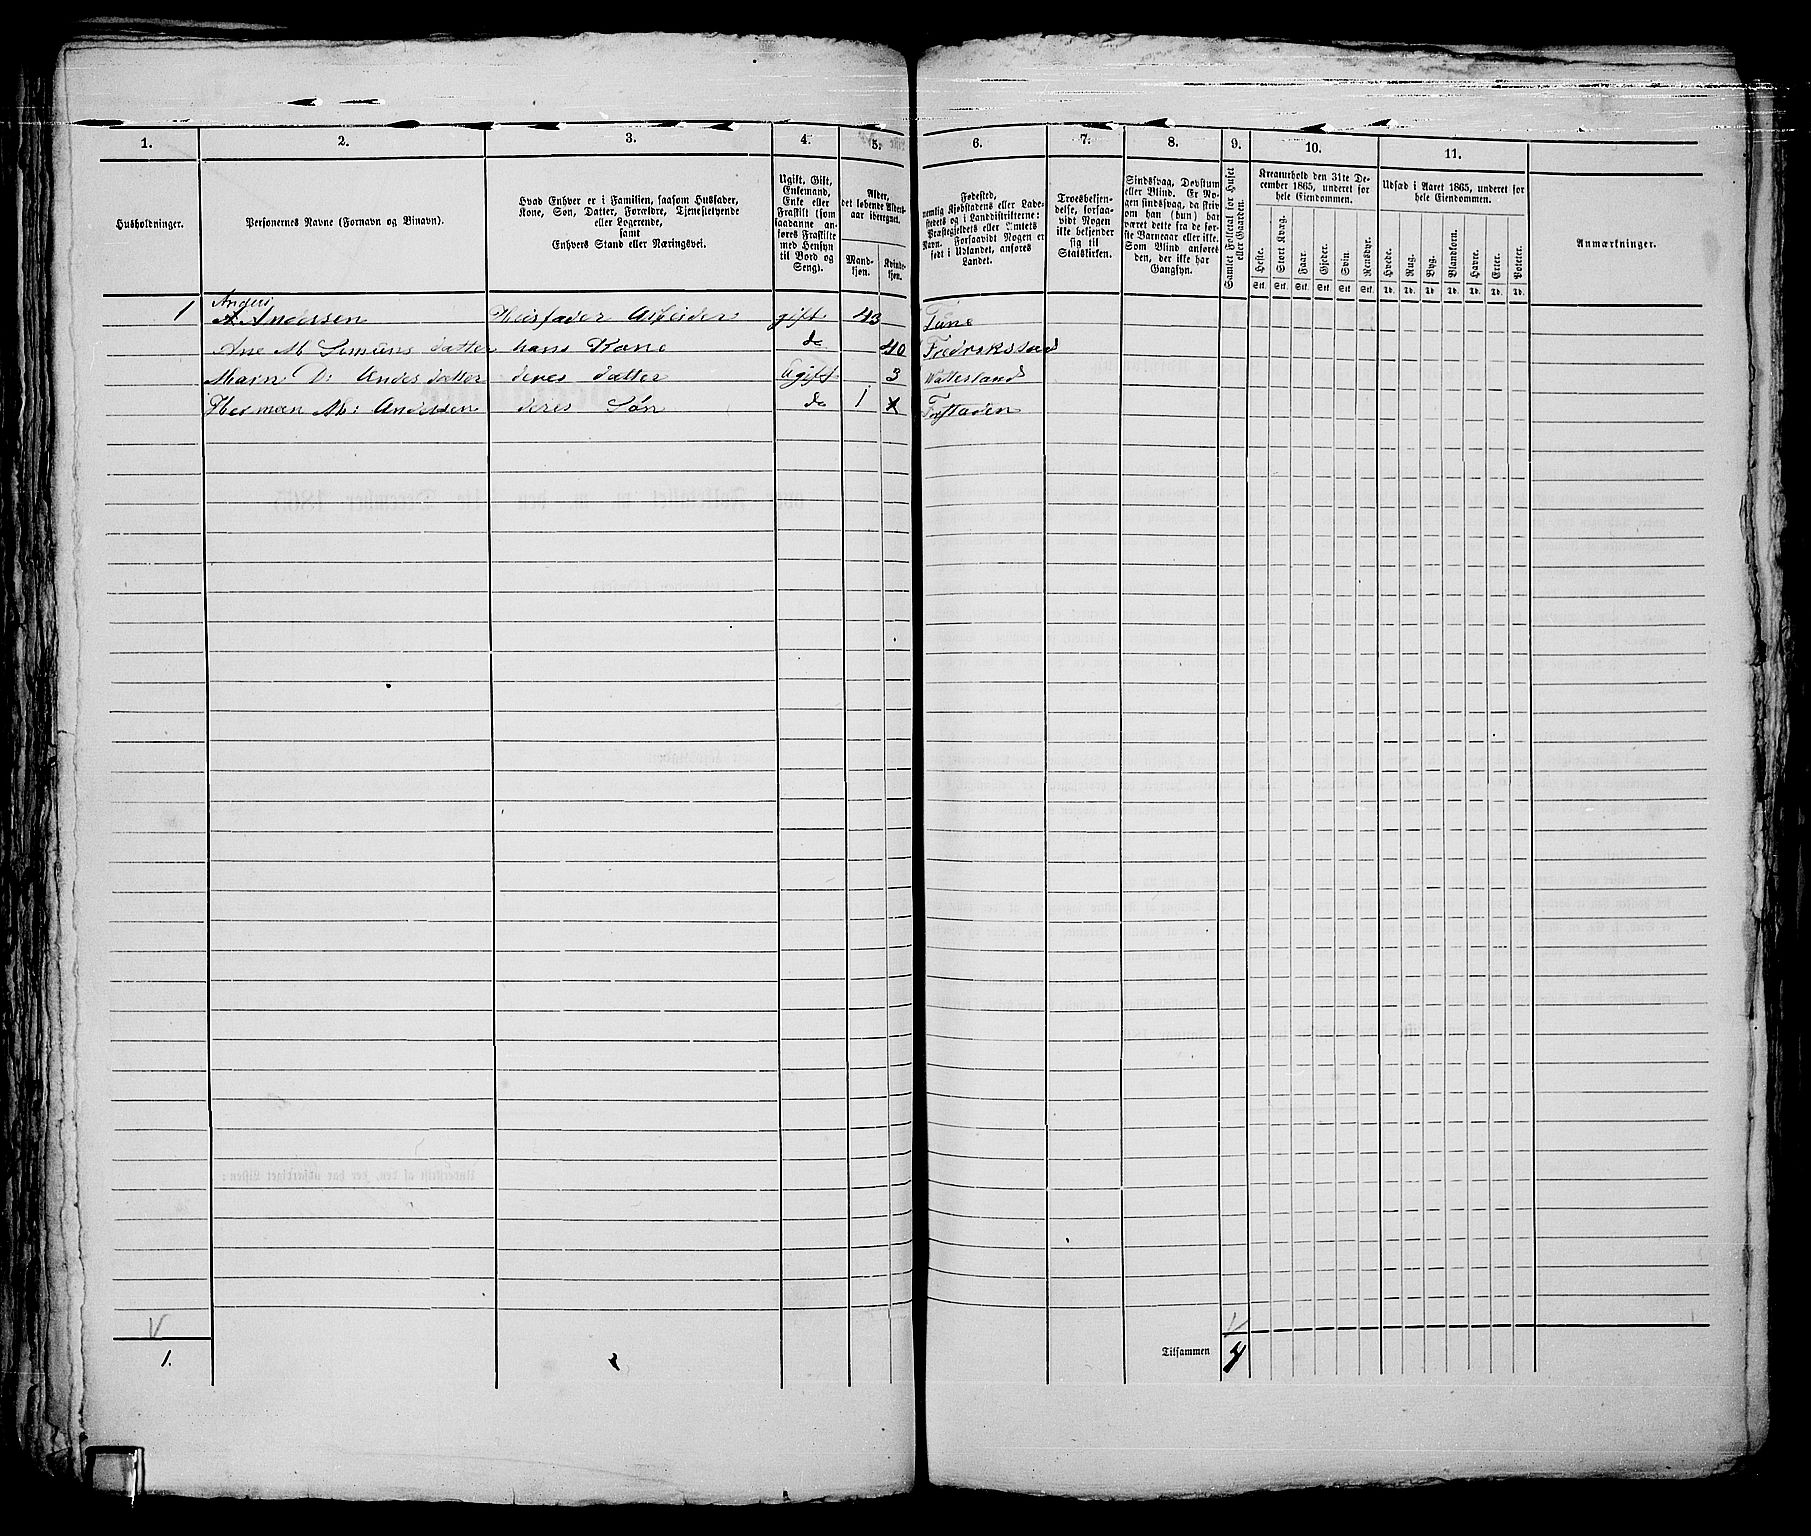 1. 2. 3. 4. 5. 6. 7. 8. 9. 10. 11.
Husholdninger.
Personernes Navne (Fornavn og Binavn).
Hvad Enhver er i Familien, saasom Husfader,
Kone, Søn, Datter, Forældre, Tjenestetyende
eller Logerende,
samt
Enhvers Stand eller Næringsvei.
Ugift, Gift,
Enkemand,
Enke eller
Fraskilt (som
saadanne an-
føres Fraskilte
med Hensyn
til Bord og
Seng).
Alder,
det løbende Alders-
aar iberegnet.
Mand-
kjøn.
Kvinde-
kjøn.
Fødested,
nemlig Kjøbstadens eller Lade-
stedets og i Landdistrikterne:
Præstegjeldets eller Sognets
Navn. Forsaavidt Nogen er
født i Udlandet, anføres
Landet.
Troesbekjen-
delse, forsaa-
vidt Nogen
ikke bekjender
sig til
Statskirken.
Sindssvag, Døvstum
eller Blind. Er No-
gen sindssvag, da skriv
om han (hun) har
været dette fra de før-
ste Barneaar eller ikke.
Som Blind anføres
den, der ikke har
Gangsyn.
Samlet Folketal for Huset
eller Gaarden.
Kreaturhold den 31te De-
cember 1865, underet for
hele Eiendommen.
Heste. Stort Kvæg. Faar. Gjeder. Svin. Rensdyr.
Stk. Stk. Stk. Stk. Stk. Stk.
Udsæd i Aaret 1865, underet for
hele Eiendommen.
Hvede. Rug. Byg. Blandkorn. Havre. Erter. Poteter.
Td. Td. Td. Td. Td. Td. Td.
Anmærkninger.
Anders
1 A Andersen Husfader Arbeider gift 43 Tune
Ane M. Simens datter hans Kone do 40 Fredrikstad
Maren D: Andes datter deres datter Ugift 3
Herman M: Anderssen deres Søn do 1
V V
1. Tilsammen 4